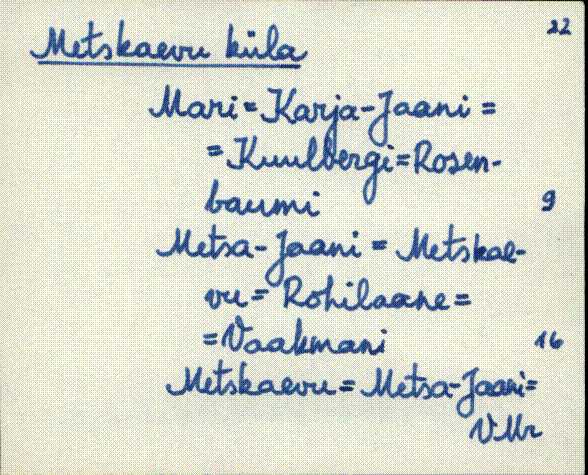 22
Metskaevu küla
Mari = Karja-Jaani =
= Kuulbergi = Rosen-
baumi 9
Metsa-Jaani = Metskae-
vu = Rohilaane =
= Vaakmani 16
Metskaevu = Metsa-Jaani =
VMr